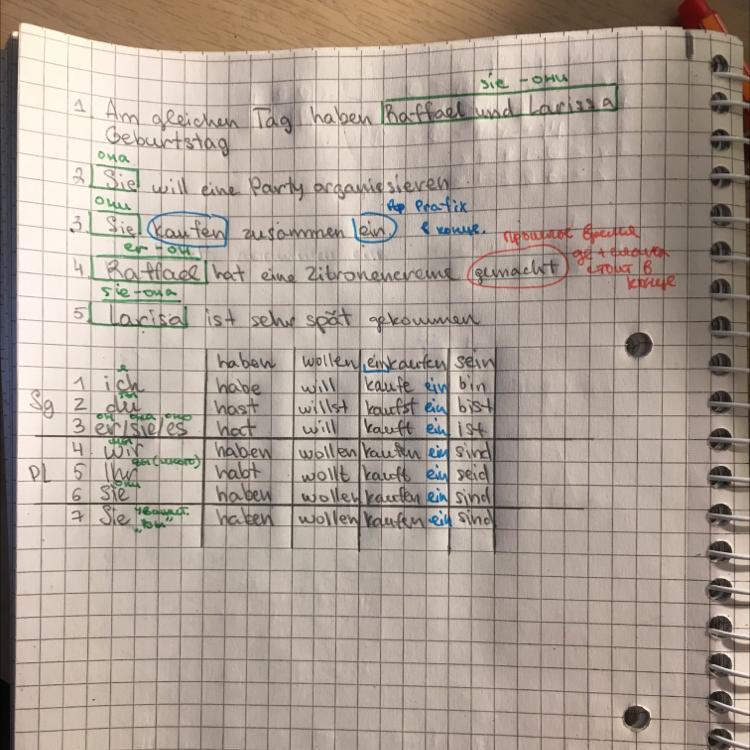 sie - они
1. Am gleichen Tag haben Raffael und Larissa
Geburtstag
она
2 Sie will eine Party organiesieren
они
3. Sie kaufen zusammen ein Prafix
в конце.
прошлое время
er - он
4 Raffael hat eine Zitronencreme gemacht
стоит в
конце
sie-она
5 Larisa ist sehr spät gekommen
haben wollen einkaufen sein
я
1 ich habe will kaufe ein bin
Sg 2 du hast willst kaufst ein bist
он она оно
3 er/sie/es hat will kauft ein ist
мы
4 wir haben wollen kaufen ein sind
вы (много)
PL 5 Ihr habt wollt kauft ein seid
они
6 sie haben wollen kaufen ein sind
7 Sie haben wollen kaufen ein sind